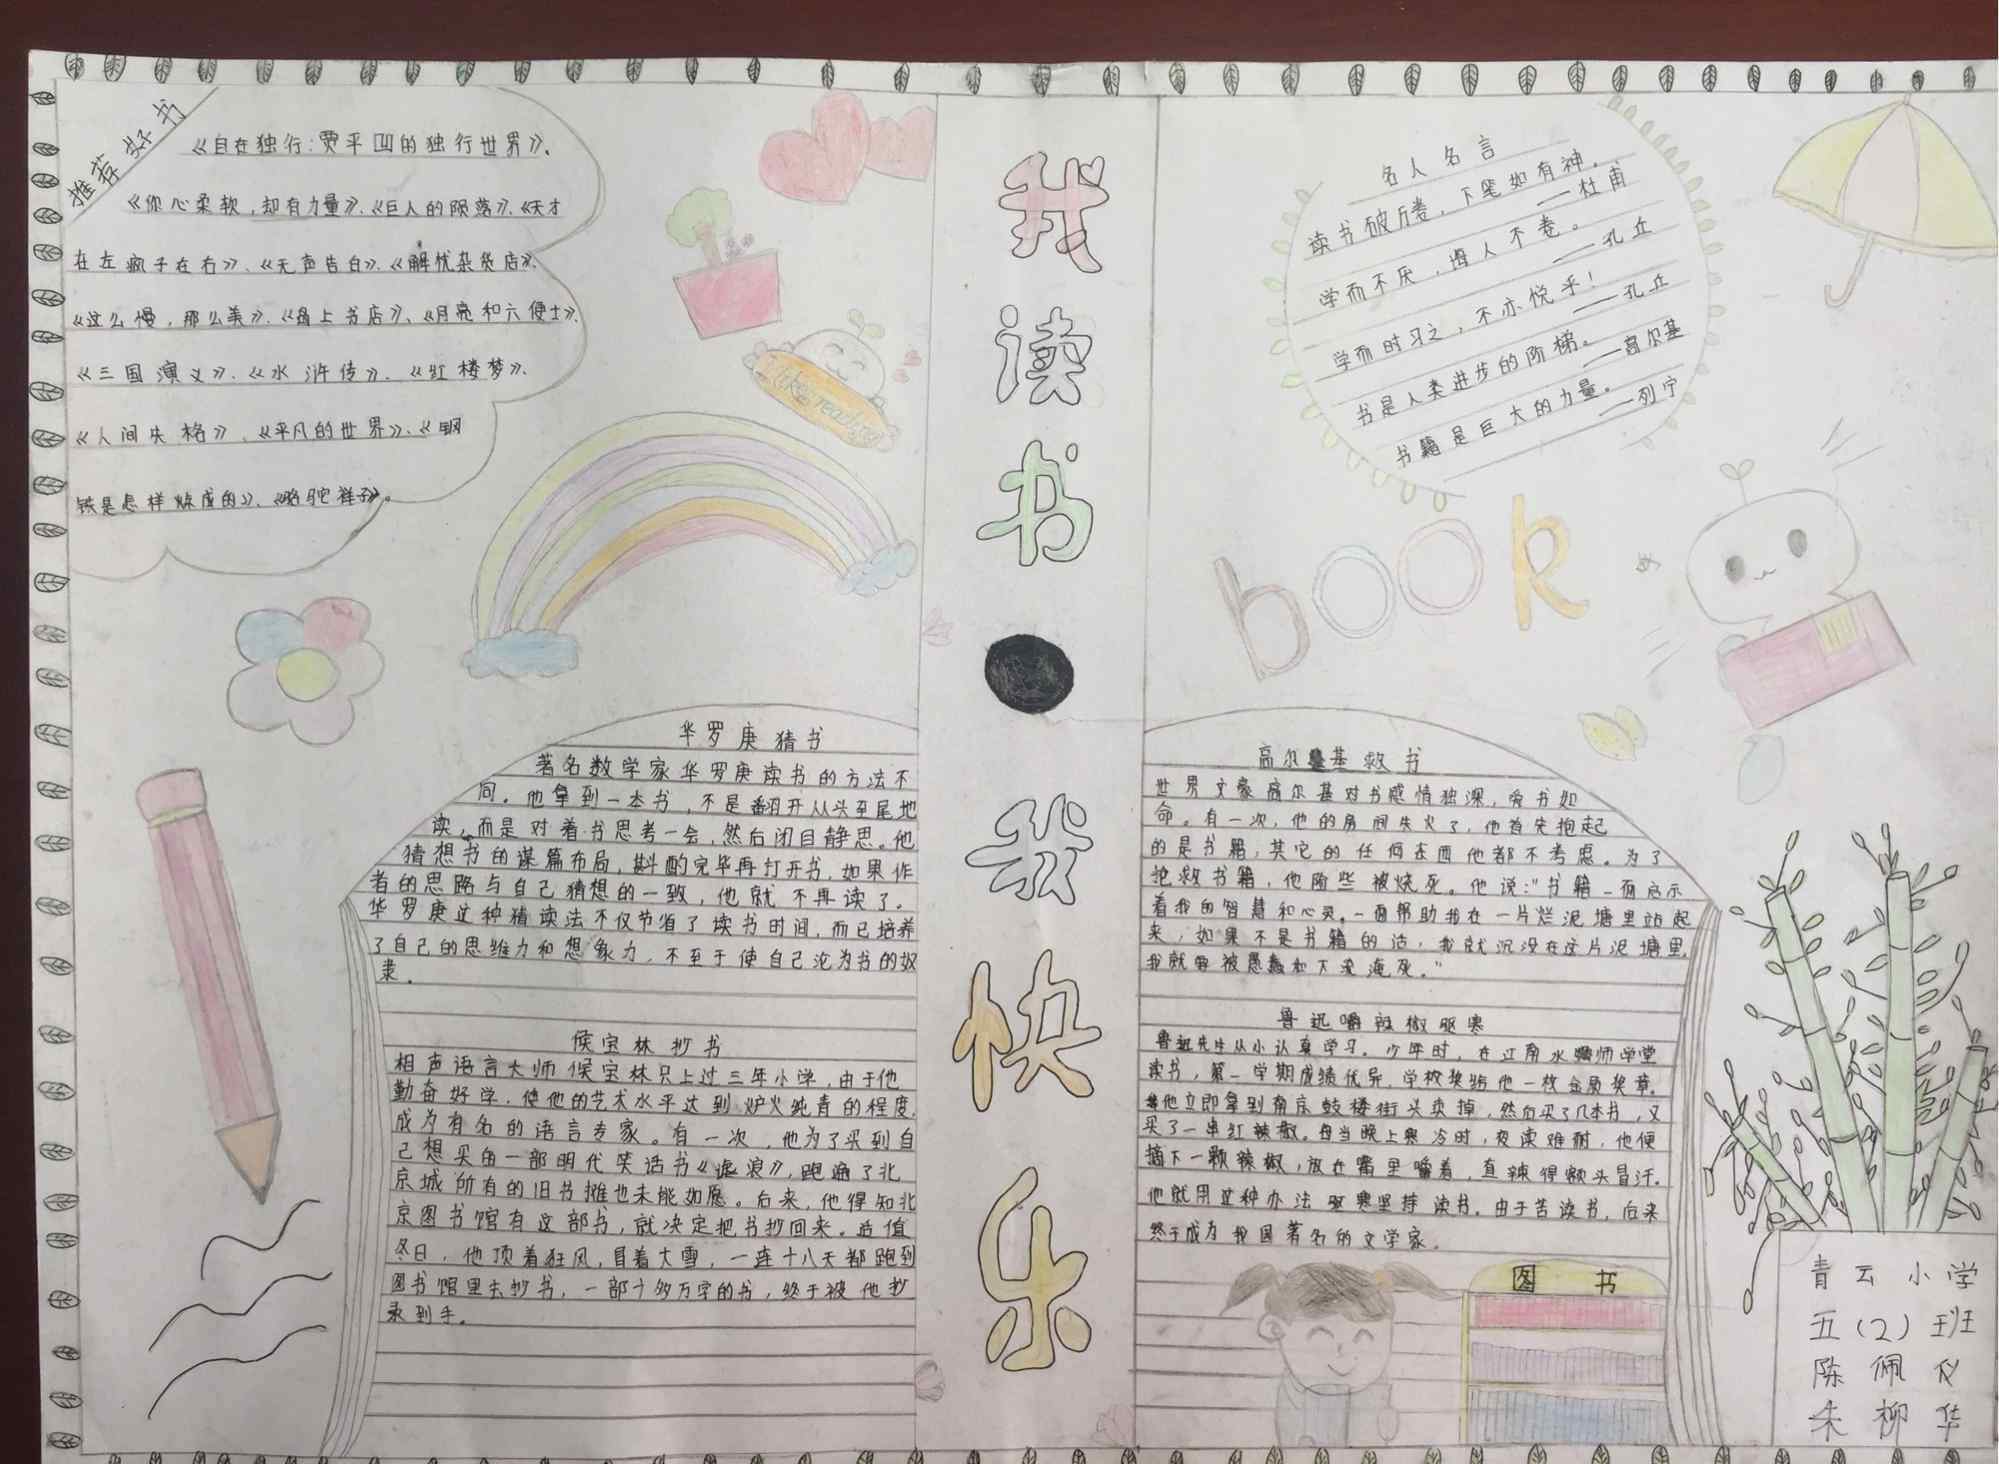 推荐好书
《自在独行:贾平凹的独行世界》、
《你心柔软,却有力量》、《巨人的陨落》、《天才
在左疯子在右》、《无声告白》、《解忧杂货店》、
《这么慢,那么美》、《岛上书店》、《月亮和六便士》、
《三国演义》、《水浒传》、《红楼梦》、
《人间失格》、《平凡的世界》、《钢
铁是怎样炼成的》、《骆驼祥子》。
like reading
我读书●我快乐
名人名言
读书破万卷,下笔如有神。
——杜甫
学而不厌,诲人不卷。
——孔丘
学而时习之,不亦悦乎!
——孔丘
书是人类进步的阶梯。
——高尔基
书籍是巨大的力量。
——列宁
book
华罗庚猜书
著名数学家华罗庚读书的方法不
同。他拿到一本书,不是翻开从头至尾地
读,而是对着书思考一会,然后闭目静思。他
猜想书的谋篇布局,斟酌完毕再打开书,如果作
者的思路与自己猜想的一致,他就不再读了。
华罗庚这种猜读法不仅节省了读书时间,而已培养
了自己的思维力和想象力,不至于使自己沦为书的奴
隶。
候宝林抄书
相声语言大师候宝林只上过三年小学,由于他
勤奋好学,使他的艺术水平达到炉火纯青的程度,
成为有名的语言专家。有一次,他为了买到自
己想买的一部明代笑话书《谑浪》,跑遍了北
京城所有的旧书摊也未能如愿。后来,他得知北
京图书馆有这部书,就决定把书抄回来。适值
冬日,他顶着狂风,冒着大雪,一连十八天都跑到
图书馆里去抄书,一部十多万字的书,终于被他抄
录到手。
高尔基救书
世界文豪高尔基对书感情独深,爱书如
命。有一次,他的房间失火了,他首先抱起
的是书籍,其它的任何东西他都不考虑。为了
抢救书籍,他险些被烧死。他说:"书籍一面启示
着我的智慧和心灵。一面帮助我在一片烂泥塘里站起
来,如果不是书籍的话,我就沉没在这片泥塘里,
我就要被愚蠢和下流淹死。"
鲁迅嚼辣椒驱寒
鲁迅先生从小认真学习。少年时,在江南水师学堂
读书,第一学期成绩优异,学校奖给他一枚金质奖章。
他立即拿到南京鼓楼街头卖掉,然后买了几本书,又
买了一串红辣椒。每当晚上寒冷时,夜读难耐,他便
摘下一颗辣椒,放在嘴里嚼着,直辣得额头冒汗。
他就用这种办法驱寒坚持读书。由于苦读书,后来
终于成为我国著名的文学家。
图书
青云小学
五(2)班
陈佩仪
朱柳华